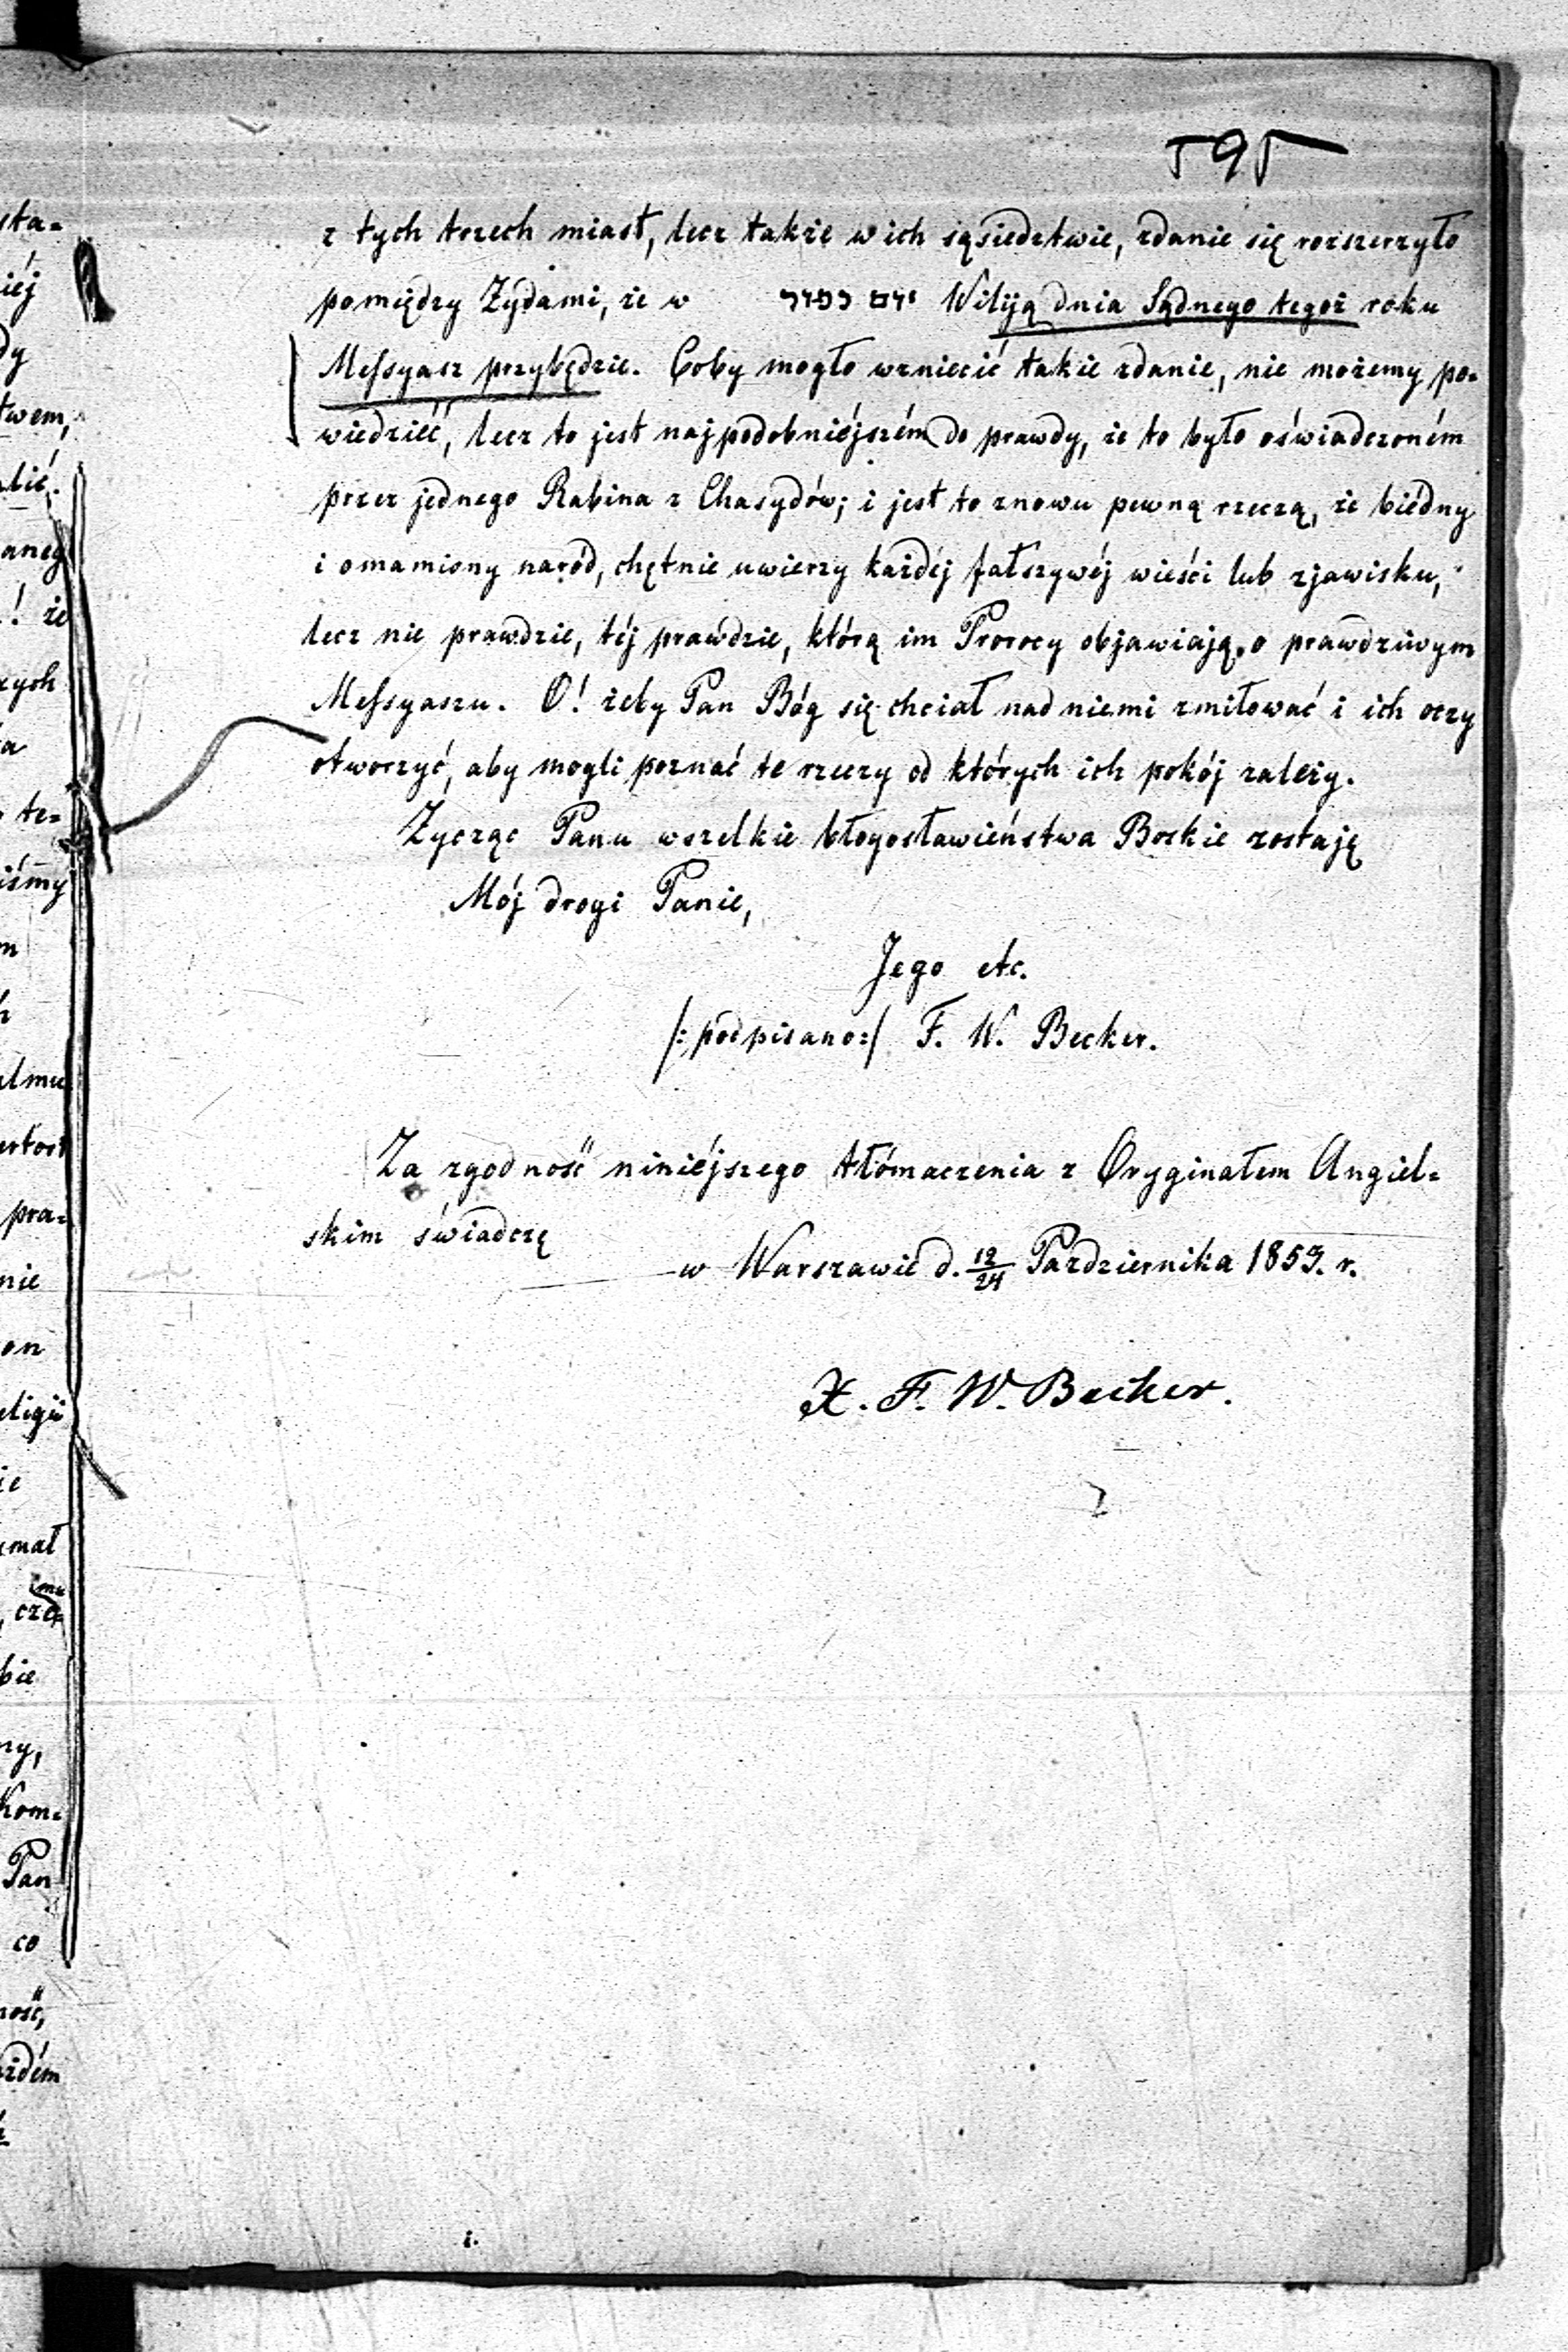 595
z tych trzech miast, lecz także w ich sąsiedztwie, zdanie się rozszerzyło
pomiędzy Żydami, że w יום כפור Wiliją dnia Sądnego tegoż roku
Messyasz przybędzie. Coby mogło wzniecić takie zdanie, nie możemy po=
wiedzieć, lecz to jest najpodobniéjszém do prawdy, że to było oświadczoném
przez jednego Rabina z Chasydów; i jest to znowu pewną rzeczą, że biédny
i omamiony naród, chętnie uwierzy każdéj fałszywéj wieści lub zjawisku,
lecz nie prawdzie, téj prawdzie, którą im Prorocy objawiają, o prawdziwym
Messyaszu. O! żeby Pan Bóg się chciał nad niemi zmiłować i ich oczy
otworzyć, aby mogli poznać te rzeczy od których ich pokój zależy.
Życząc Panu wszelkie błogosławieństwa Boskie zostaję
Mój drogi Panie,
Jego etc.
/: podpisano :/ F. W. Becker.
Za zgodność niniéjszego tłómaczenia z Oryginałem Angiel=
skim świadczę
w Warszawie d. 12/24 Października 1853. r.
X. F. W. Becker.
sta=
iéj
dy
twem,
bić.
aneg
! że
zych
a
te=
iśmy
m
elmu
pra=
nie
on
eligii
ie
ymał
cze=
bie
ny,
Kom=
Pan
co
ność,
ażdém